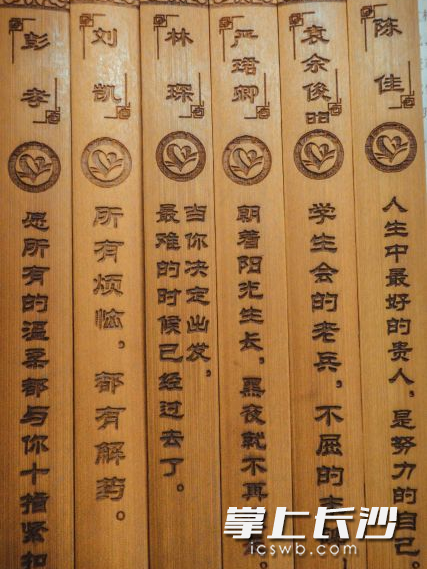 陈佳
人生中最好的贵人,是努力的自己。
袁余俊明
学生会的老兵,不屈的
严珺卿
朝着阳光生长,黑夜就不再
林琛
当你决定出发,
最难的时候已经过去了。
刘凯
所有烦恼,都有解药。
彭孝
愿所有的温柔都与你十指紧扣
掌上长沙
icswb.com